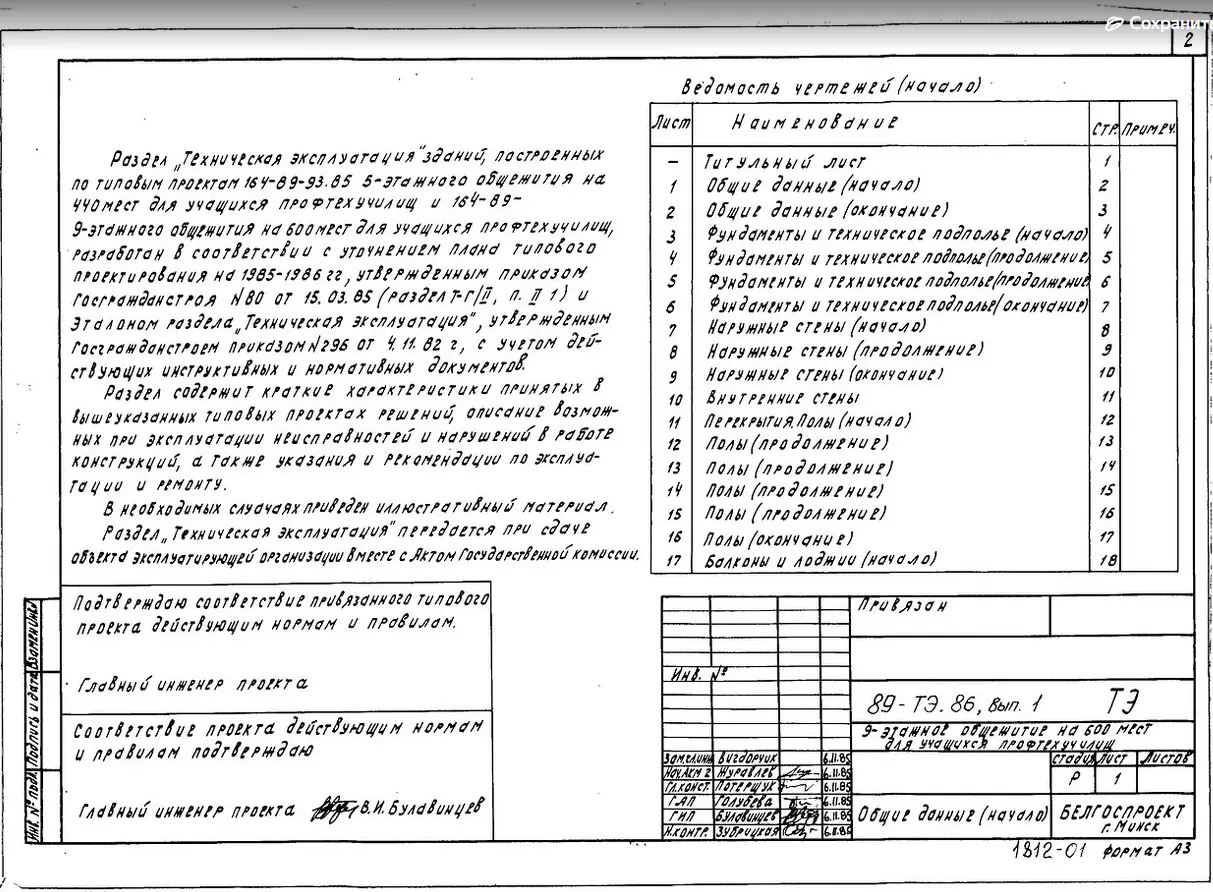 Сохранить
2
Раздел „Техническая эксплуатация" зданий, построенных
по типовым проектам 164-89-93.85 5-этажного общежития на
440 мест для учащихся профтехучилищ и 164-89-
9-этажного общежития на 600 мест для учащихся профтехучилищ,
разработан в соответствии с уточнением плана типового
проектирования на 1985-1986 гг, утвержденным приказом
Госгражданстроя №80 от 15.03.85 (раздел Т-Г/II, п. II 1) и
Эталоном раздела „Техническая эксплуатация", утвержденным
Госгражданстроем приказом №296 от 4.11.82 г, с учетом дей-
ствующих инструктивных и нормативных документов.
Раздел содержит краткие характеристики принятых в
вышеуказанных типовых проектах решений, описание возмож-
ных при эксплуатации неисправностей и нарушений в работе
конструкций, а также указания и рекомендации по эксплуа-
тации и ремонту.
В необходимых случаях приведен иллюстративный материал.
Раздел „Техническая эксплуатация" передается при сдаче
объекта эксплуатирующей организации вместе с Актом Государственной комиссии.
Подтверждаю соответствие привязанного типового
проекта действующим нормам и правилам.
Главный инженер проекта
Соответствие проекта действующим нормам
и правилам подтверждаю
Главный инженер проекта В.И. Булавинцев
Ведомость чертежей (начало)
Лист Наименование Стр. Примеч.
— Титульный лист 1
1 Общие данные (начало) 2
2 Общие данные (окончание) 3
3 Фундаменты и техническое подполье (начало) 4
4 Фундаменты и техническое подполье (продолжение) 5
5 Фундаменты и техническое подполье (продолжение) 6
6 Фундаменты и техническое подполье (окончание) 7
7 Наружные стены (начало) 8
8 Наружные стены (продолжение) 9
9 Наружные стены (окончание) 10
10 Внутренние стены 11
11 Перекрытия. Полы (начало) 12
12 Полы (продолжение) 13
13 Полы (продолжение) 14
14 Полы (продолжение) 15
15 Полы (продолжение) 16
16 Полы (окончание) 17
17 Балконы и лоджии (начало) 18
Привязан
Инв. №
89-ТЭ.86, вып. 1 ТЭ
9-этажное общежитие на 600 мест
для учащихся профтехучилищ
Зам.гл.инж Вигдорчик 6.11.85
Нач.АКМ 2 Журавлев 6.11.85
Гл.конст. Потерщук 6.11.85
ГАП Голубева 6.11.85
ГИП Булавинцев 6.11.85
Н.контр. Зубрицкая 6.11.85
Стадия Лист Листов
Р 1
Общие данные (начало)
БЕЛГОСПРОЕКТ
г. Минск
1812-01 Формат А3
Инв. № подл. Подпись и дата Взамен инв.